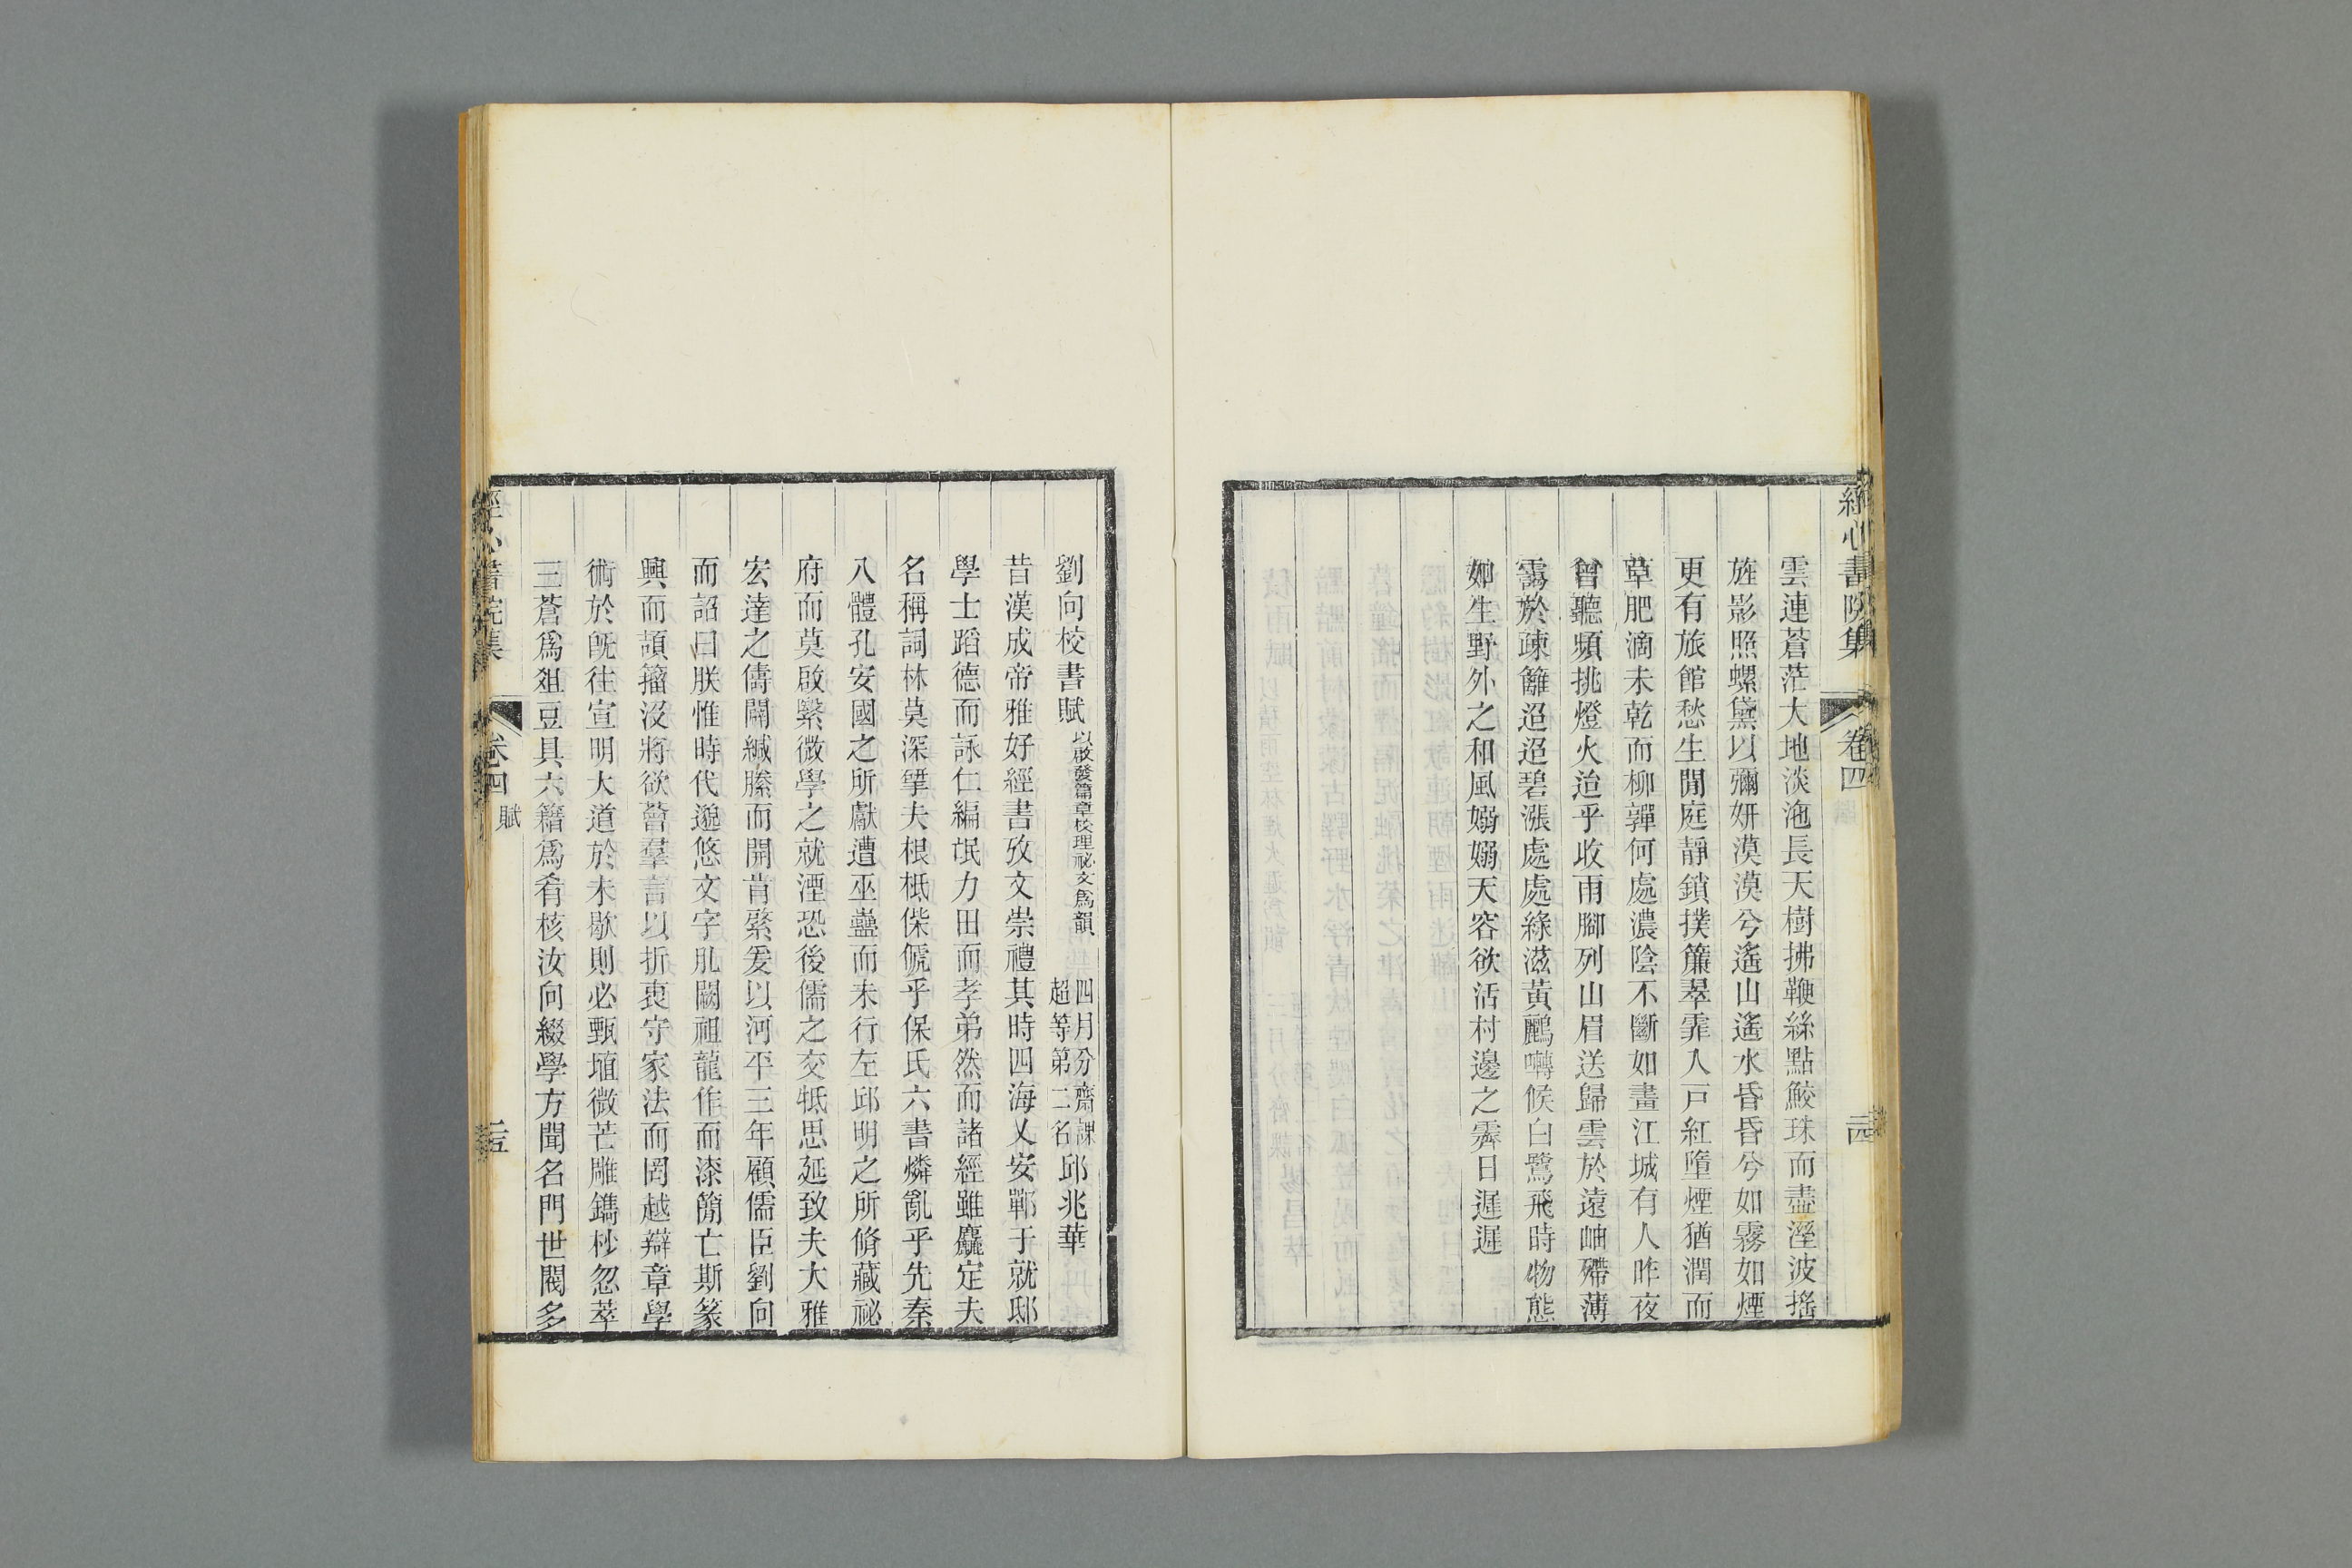 經心書院集
卷四
二四
雲連蒼茫大地淡沲長天樹拂鞭絲點鮫珠而盡溼波搖
旌影照螺黛以彌妍漠漠兮遙山遙水昏昏兮如霧如煙
更有旅館愁生閒庭靜鎖撲簾翠霏人戸紅墮煙猶潤而
草肥滴未乾而柳嚲何處濃陰不斷如畫江城有人昨夜
曾聽頻挑燈火迨乎收雨腳列山眉送歸雲於遠岫殢薄
靄於疎籬迢迢碧漲處處綠滋黃鸝囀候白鷺飛時物態
妍生野外之和風嫋嫋天容欲活村邊之霽日遲遲
劉向校書賦
以啟發篇章校理祕文為韻
四月分齋課
超等第二名
邱兆華
昔漢成帝雅好經書攷文崇禮其時四海乂安鄲于就邸
學士蹈德而詠仁編氓力田而孝弟然而諸經雖麤定夫
名稱詞林莫深揅夫根柢偨傂乎保氏六書燐亂乎先秦
八體孔安國之所獻遭巫蠱而未行左邱明之所脩藏祕
府而莫啟緊微學之就湮恐後儒之交牴思延致夫大雅
宏達之儔闢緘縢而開肯綮爰以河平三年顧儒臣劉向
而詔曰朕惟時代邈悠文字肍闕祖龍作而漆簡亡斯篆
興而頡籀沒將欲薈羣言以折衷守家法而罔越辯章學
術於旣往宣明大道於未歇則必甄埴微芒雕鐫杪忽萃
三蒼爲俎豆具六籍爲肴核汝向綴學方聞名門世閥多
經心書院集
卷四
賦
二五